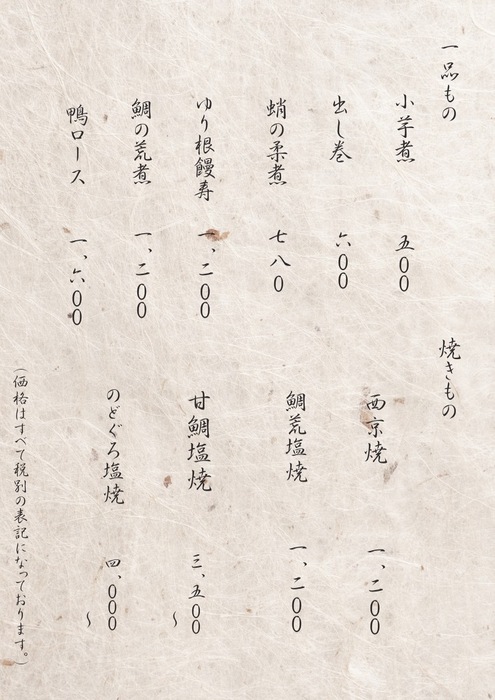 一品もの
小芋煮 五00
出し巻 六00
蛸の柔煮 七八0
ゆり根饅寿 一、二00
鯛の荒煮 一、二00
鴨ロース 一、六00
焼きもの
西京焼 一、二00
鯛荒塩焼 一、二00
甘鯛塩焼 三、五00～
のどぐろ塩焼 四、000～
(価格はすべて税別の表記になっております。)